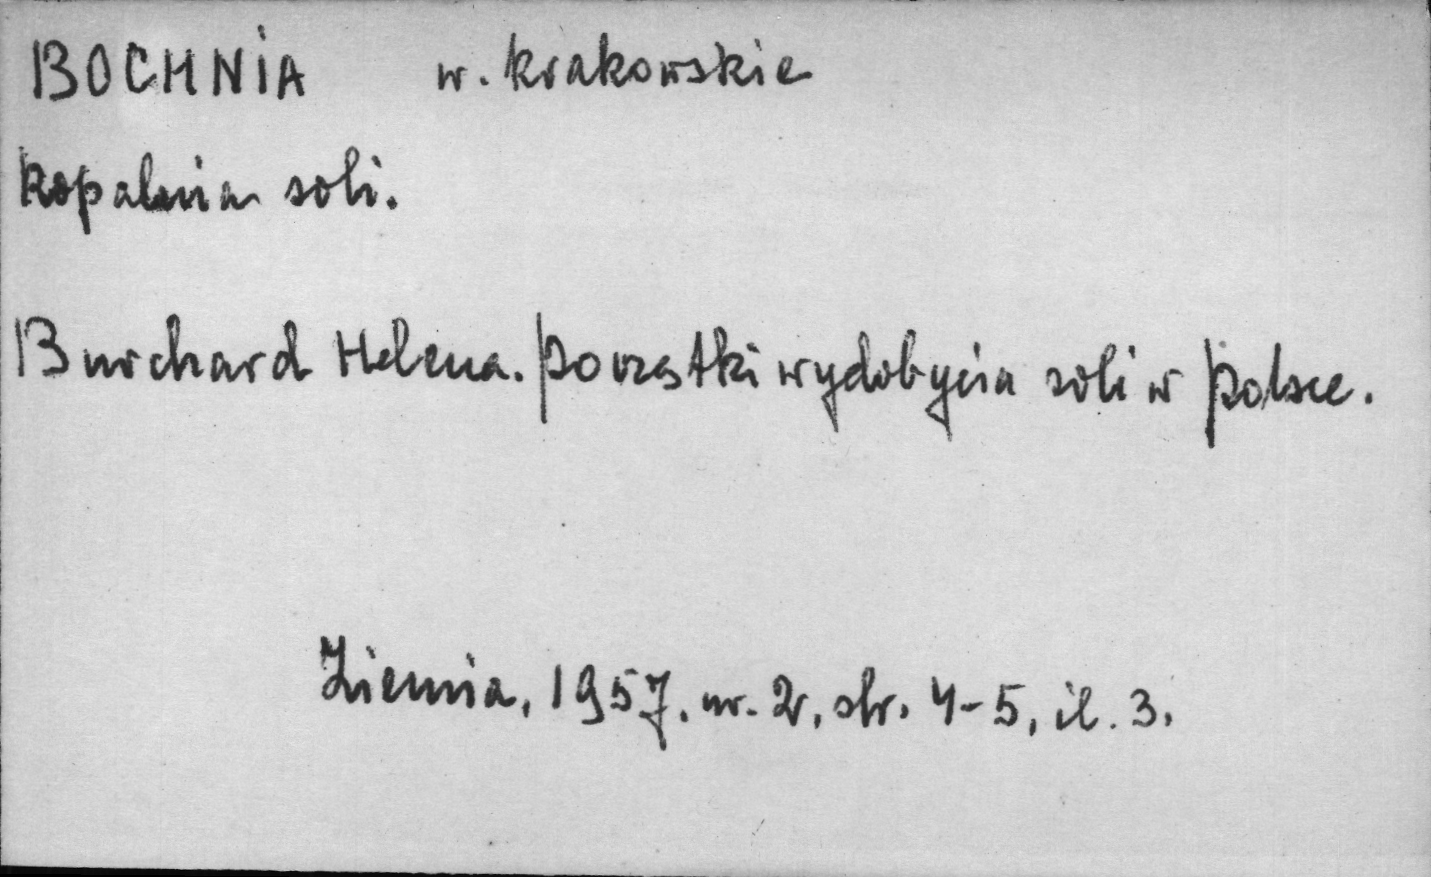 BOCHNIA w. krakowskie
Kopalnia soli.
Burchard Helena. Początki wydobycia soli w Polsce.
Ziemia, 1957. nr. 2, str. 4-5, il. 3.